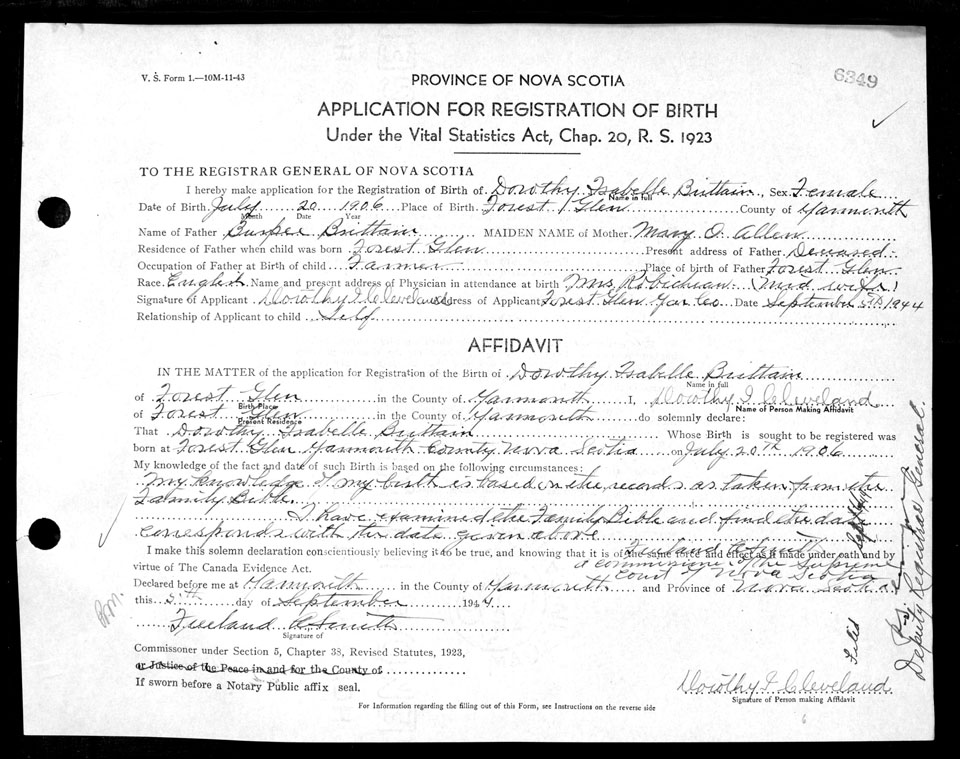 V. S. Form 1.—10M-11-43
6349
PROVINCE OF NOVA SCOTIA
APPLICATION FOR REGISTRATION OF BIRTH
Under the Vital Statistics Act, Chap. 20, R. S. 1923
TO THE REGISTRAR GENERAL OF NOVA SCOTIA
I hereby make application for the Registration of Birth of Dorothy Isabelle Brittain, Sex Female
Name in full
Date of Birth July 20 1906 Place of Birth Forest Glen County of Yarmouth
Month Date Year
Name of Father Burpee Brittain MAIDEN NAME of Mother Mary O. Allen
Residence of Father when child was born Forest Glen Present address of Father Deceased
Occupation of Father at Birth of child Farmer Place of birth of Father Forest Glen
Race English Name and present address of Physician in attendance at birth Mrs Robichean (Mid wife)
Signature of Applicant Dorothy I Cleveland Address of Applicant Forest Glen Yar Co. Date September 5th 1944
Relationship of Applicant to child Self
AFFIDAVIT
IN THE MATTER of the application for Registration of the Birth of Dorothy Isabelle Brittain
Name in full
of Forest Glen in the County of Yarmouth I, Dorothy I Cleveland
Birth Place Name of Person Making Affidavit
of Forest Glen in the County of Yarmouth do solemnly declare:
Present Residence
That Dorothy Isabelle Brittain Whose Birth is sought to be registered was
born at Forest Glen Yarmouth County Nova Scotia on July 20th 1906
My knowledge of the fact and date of such Birth is based on the following circumstances:
My knowledge of my birth is based on the records as taken from the
Family Bible
I have examined the Family Bible and find the date
corresponds with the date given above
Freeland A Smith
I make this solemn declaration conscientiously believing it to be true, and knowing that it is of the same force and effect as if made under oath and by
a commissioner of the Supreme
virtue of The Canada Evidence Act.
Court of Nova Scotia
Declared before me at Yarmouth in the County of Yarmouth and Province of Nova Scotia
this 5th day of September 1944
Freeland A Smith
Signature of
Commissioner under Section 5, Chapter 38, Revised Statutes, 1923,
or Justice of the Peace in and for the County of
If sworn before a Notary Public affix seal.
Dorothy I Cleveland
Signature of Person making Affidavit
For Information regarding the filling out of this Form, see Instructions on the reverse side
Filed Sept
Deputy Registrar General.